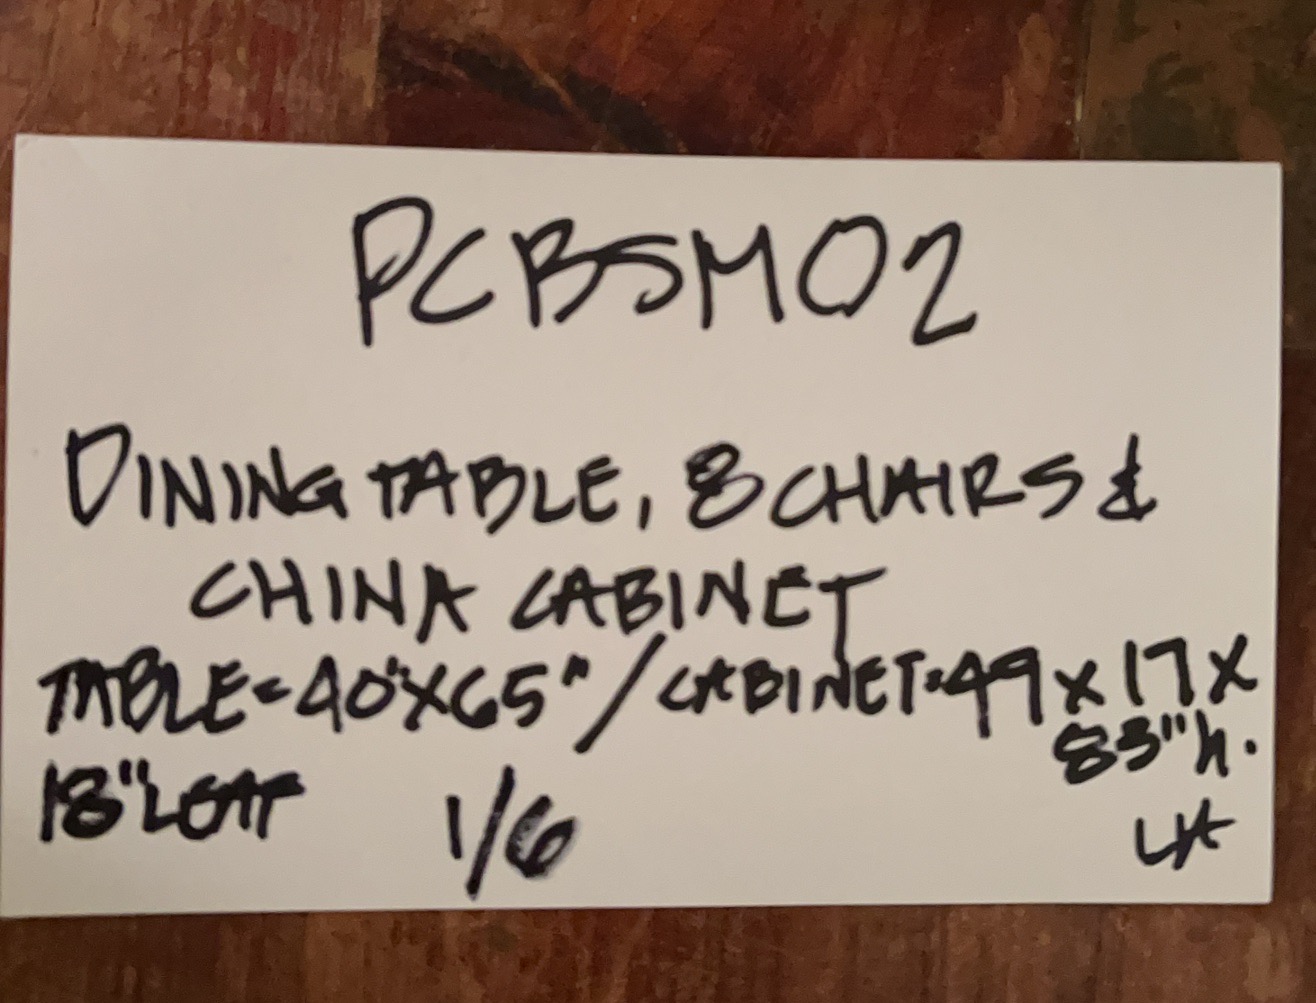 PCBSM02
DINING TABLE, 8 CHAIRS &
CHINA CABINET
TABLE=40"X65"/CABINET=49x17x
83"h.
18"LEAF 1/6